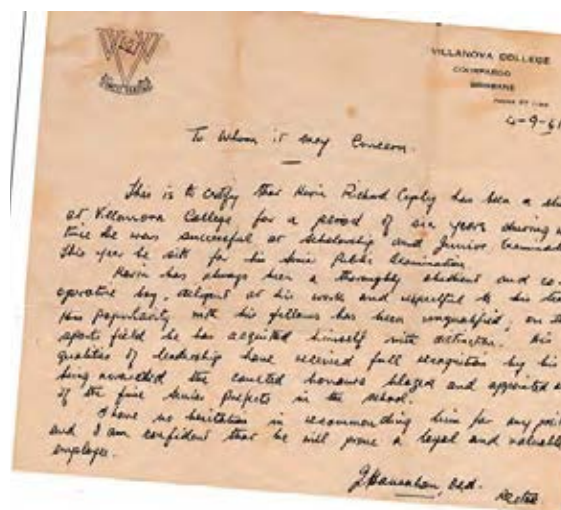 VILLANOVA COLLEGE
COORPAROO
BRISBANE
4-9-61
To Whom it may Concern.
This is to certify that Kevin Richard has been a
at Villanova College for a period of six years during
time he was successful at Scholarship and Junior
This year he sits for his Senior Public Examination.
Kevin has always been a thoroughly obedient and co-
operative boy, diligent at his work and respectful to his
His popularity with his fellows has been unqualified; on
sports field he has acquitted himself with distinction. His
qualities of leadership have received full recognition by his
being awarded the coveted honours blazer and appointed
of the five Senior Prefects in the school.
I have no hesitation in recommending him for any
and I am confident that he will prove a loyal and valuable
employee.
O.S.A.
Rector